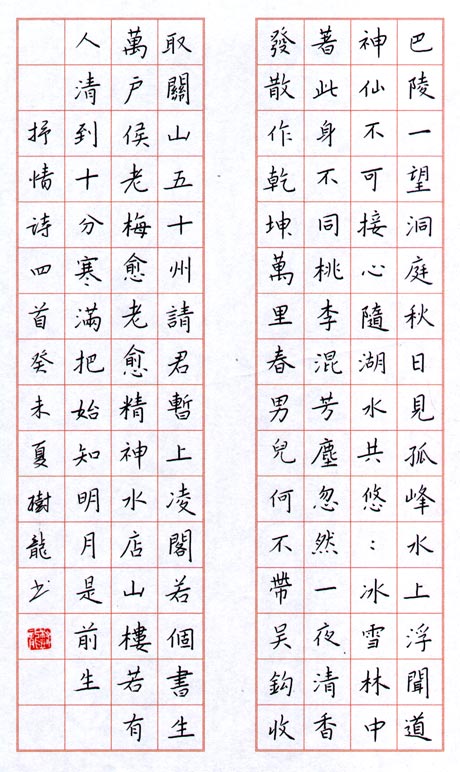 巴陵一望洞庭秋日見孤峰水上浮聞道
神仙不可接心隨湖水共悠：冰雪林中
著此身不同桃李混芳塵忽然一夜清香
發散作乾坤萬里春男兒何不帶吴鈎收
取關山五十州請君暫上凌閣若個書生
萬戶侯老梅愈老愈精神水店山樓若有
人清到十分寒滿把始知明月是前生
抒情诗四首癸未夏樹龍书